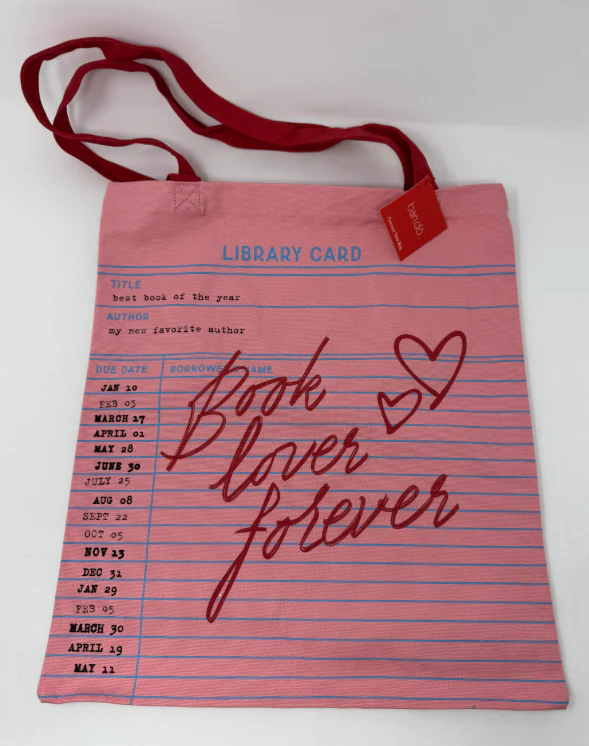 ban.dō.
Canvas Tote Bag
LIBRARY CARD
TITLE
best book of the year
AUTHOR
my new favorite author
DUE DATE
BORROWER NAME
JAN 10
FEB 03
MARCH 17
APRIL 01
MAY 28
JUNE 30
JULY 25
AUG 08
SEPT 22
OCT 05
NOV 13
DEC 31
JAN 29
FEB 05
MARCH 30
APRIL 19
MAY 11
Book
lover
forever